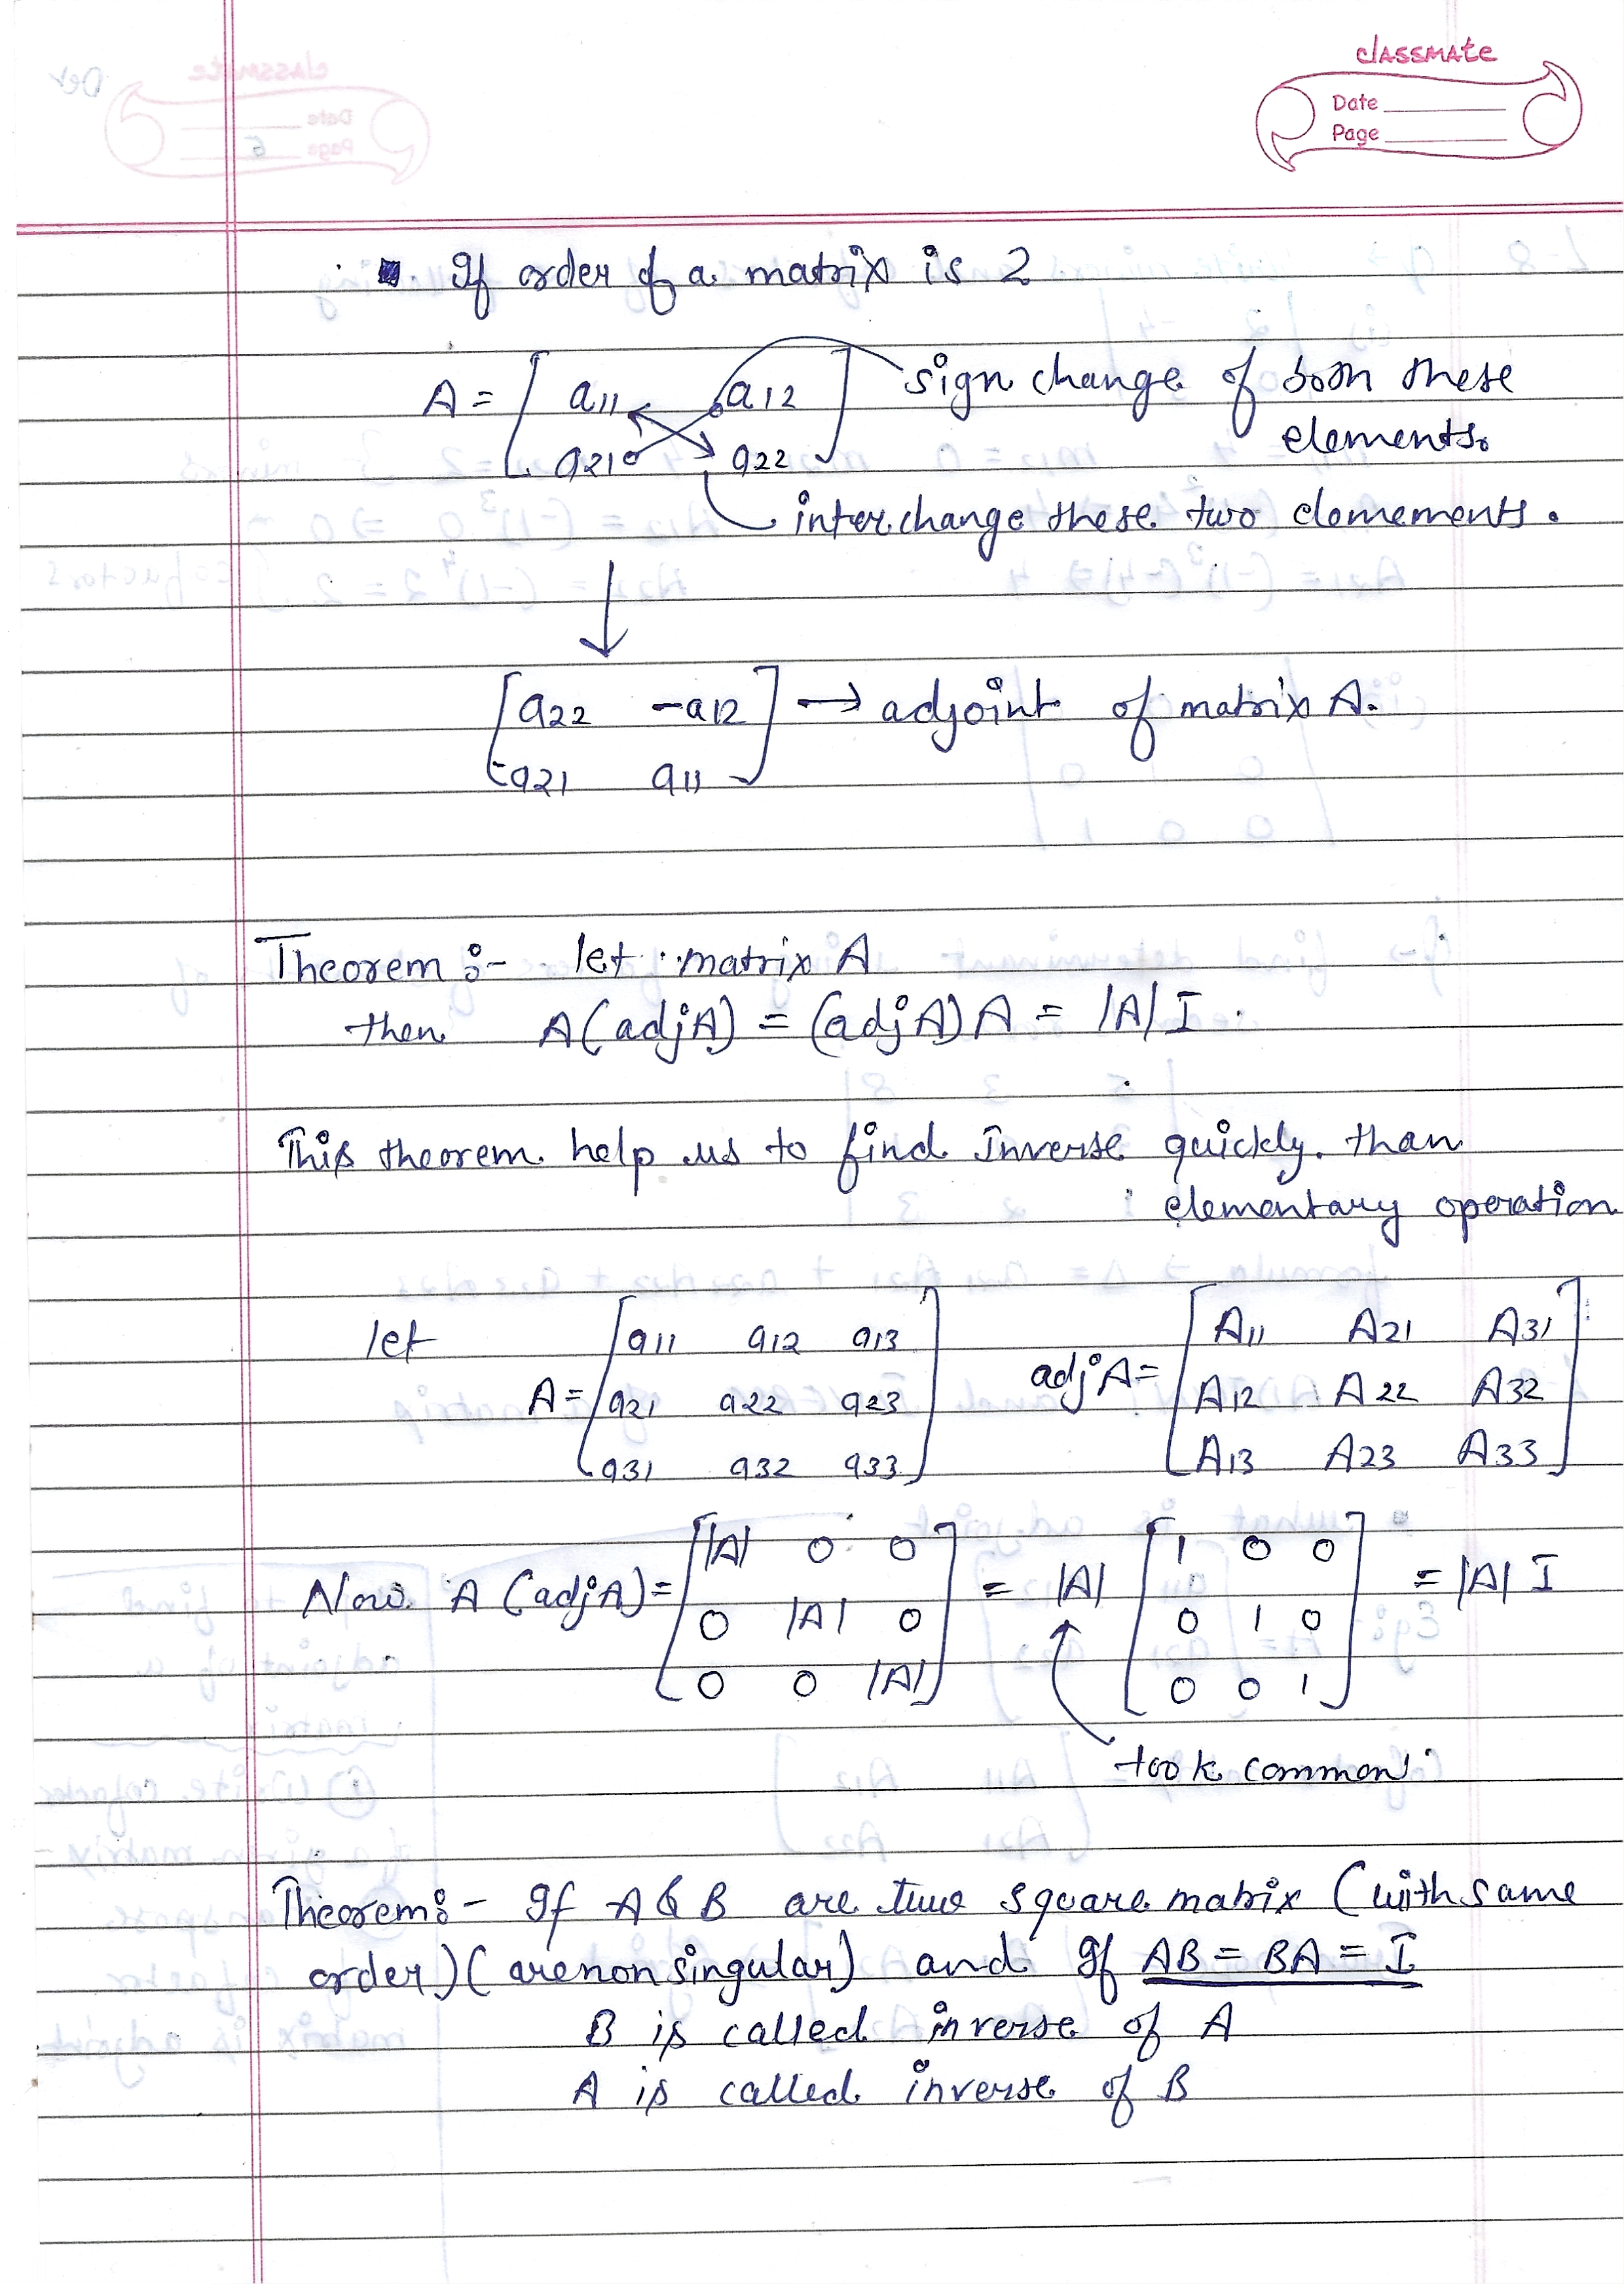 classmate
Date
Page
If order of a matrix is 2
A = [ a11 a12 ] sign change of both these
elements.
a21 a22
interchange these two elomements.
[ a22 -a12 ] → adjoint of matrix A.
-a21 a11
Theorem :- let matrix A
then A(adjA) = (adjA)A = |A| I.
This theorem help us to find Inverse quickly than
elementary operation
let A = [ a11 a12 a13 adjA = [ A11 A21 A31
a21 a22 a23 A12 A22 A32
a31 a32 a33 ] A13 A23 A33 ]
Now A (adjA) = [ |A| 0 0 = |A| [ 1 0 0 = |A| I
0 |A| 0 0 1 0
0 0 |A| ] 0 0 1 ]
took common
Theorem :- If A & B are two square matrix (with same
order) (are non singular) and If AB = BA = I
B is called inverse of A
A is called inverse of B